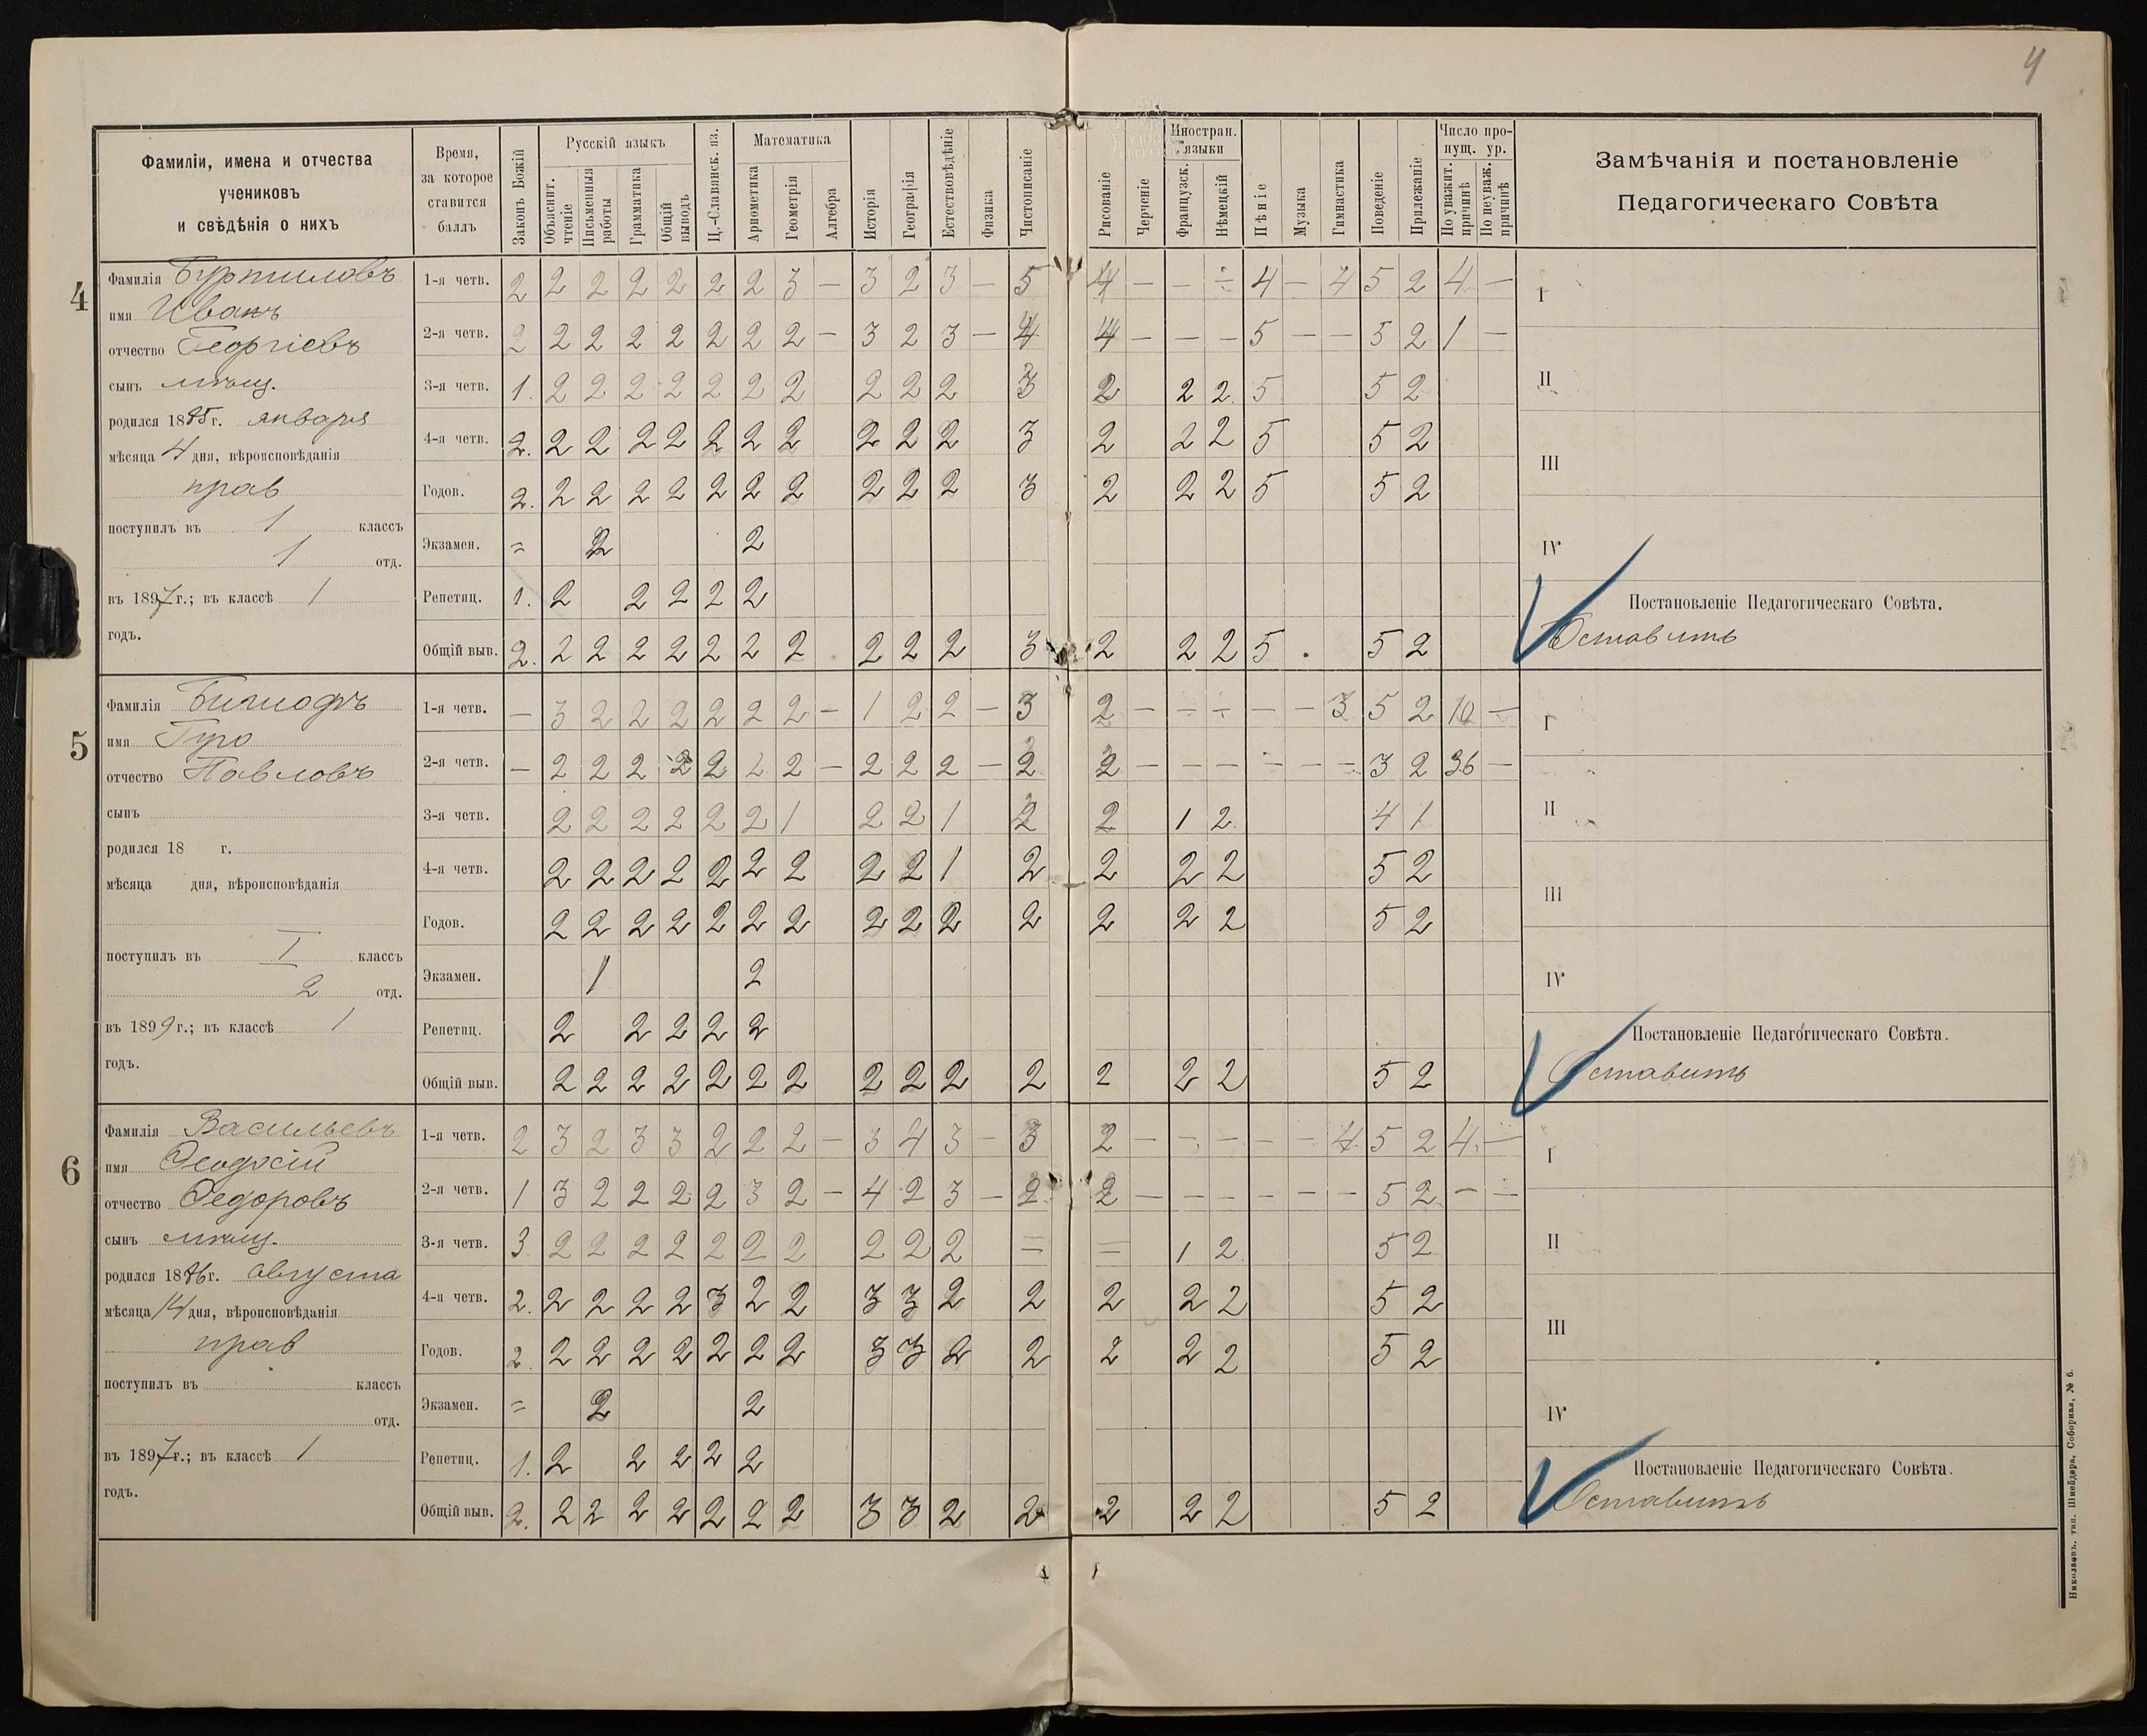 4
Фамиліи, имена и отчества
учениковъ
и свѣдѣнія о нихъ
Время,
за которое
ставится
баллъ
Законъ Божій
Русскій языкъ
Объяснит.
чтеніе
Письменныя
работы
Грамматика
Общій
выводъ
Ц.-Славянск. яз.
Математика
Ариѳметика
Геометрія
Алгебра
Исторія
Географія
Естествовѣдѣніе
Физика
Чистописаніе
Рисованіе
Черченіе
Иностран.
языки
Французск.
Нѣмецкій
Пѣніе
Музыка
Гимнастика
Поведеніе
Прилежаніе
Число про-
пущ. ур.
По уважит.
причинѣ
По неуваж.
причинѣ
Замѣчанія и постановленіе
Педагогическаго Совѣта
4
Фамилія Буртиловъ
имя Иванъ
отчество Георгіевъ
сынъ мѣщ.
родился 1885 г. января
мѣсяца 4 дня, вѣроисповѣданія
прав
поступилъ въ 1 классъ
1 отд.
въ 1897 г.; въ классѣ 1
годъ.
1-я четв. 2 2 2 2 2 2 2 3 — 3 2 3 — 5 4 — — ÷ 4 — 4 5 2 4 —
2-я четв. 2 2 2 2 2 2 2 2 — 3 2 3 — 4 4 — — — 5 — — 5 2 1 —
3-я четв. 1. 2 2 2 2 2 2 2 2 2 2 3 2 2 2. 5 5 2
4-я четв. 2. 2 2 2 2 2 2 2 2 2 2 3 2 2 2 5 5 2
Годов. 2. 2 2 2 2 2 2 2 2 2 2 3 2 2 2 5 5 2
Экзамен. = 2 2
Репетиц. 1. 2 2 2 2 2
Общій выв. 2. 2 2 2 2 2 2 2 2 2 2 3 2 2 2 5 . 5 2
I
II
III
IV
Постановленіе Педагогическаго Совѣта.
Оставить
5
Фамилія
имя
отчество Павловъ
сынъ
родился 18 г.
мѣсяца дня, вѣроисповѣданія
поступилъ въ I классъ
2 отд.
въ 1899 г.; въ классѣ 1
годъ.
1-я четв. — 3 2 2 2 2 2 2 — 1 2 2 — 3 2 — ÷ ÷ — — 3 5 2 10 —
2-я четв. — 2 2 2 2 2 2 2 — 2 2 2 — 2 2 — — — — — — 3 2 36 —
3-я четв. 2 2 2 2 2 2 1 2 2 1 2 2 1 2. 4 1
4-я четв. 2 2 2 2 2 2 2 2 2 1 2 2 2 2 5 2
Годов. 2 2 2 2 2 2 2 2 2 2 2 2 2 2 5 2
Экзамен. 1 2
Репетиц. 2 2 2 2 2
Общій выв. 2 2 2 2 2 2 2 2 2 2 2 2 2 2 5 2
I
II
III
IV
Постановленіе Педагогическаго Совѣта.
Оставить
6
Фамилія Васильевъ
имя Ѳеодосій
отчество Ѳедоровъ
сынъ мѣщ.
родился 1886 г. августа
мѣсяца 14 дня, вѣроисповѣданія
прав
поступилъ въ классъ
отд.
въ 1897 г.; въ классѣ 1
годъ.
1-я четв. 2 3 2 3 3 2 2 2 — 3 4 3 — 3 2 — — — — — 4 5 2 4. —
2-я четв. 1 3 2 2 2 2 3 2 — 4 2 3 — 2 2 — — — — — — 5 2 — —
3-я четв. 3. 2 2 2 2 2 2 2 2 2 2 = = 1 2. 5 2
4-я четв. 2. 2 2 2 2 3 2 2 3 3 2 2 2 2 2 5 2
Годов. 2. 2 2 2 2 2 2 2 3 3 2 2 2 2 2 5 2
Экзамен. = 2 2
Репетиц. 1. 2 2 2 2 2
Общій выв. 2. 2 2 2 2 2 2 2 3 3 2 2 2 2 2 5 2
I
II
III
IV
Постановленіе Педагогическаго Совѣта.
Оставить
Николаевъ. тип. Шнейдера, Соборная, № 6.